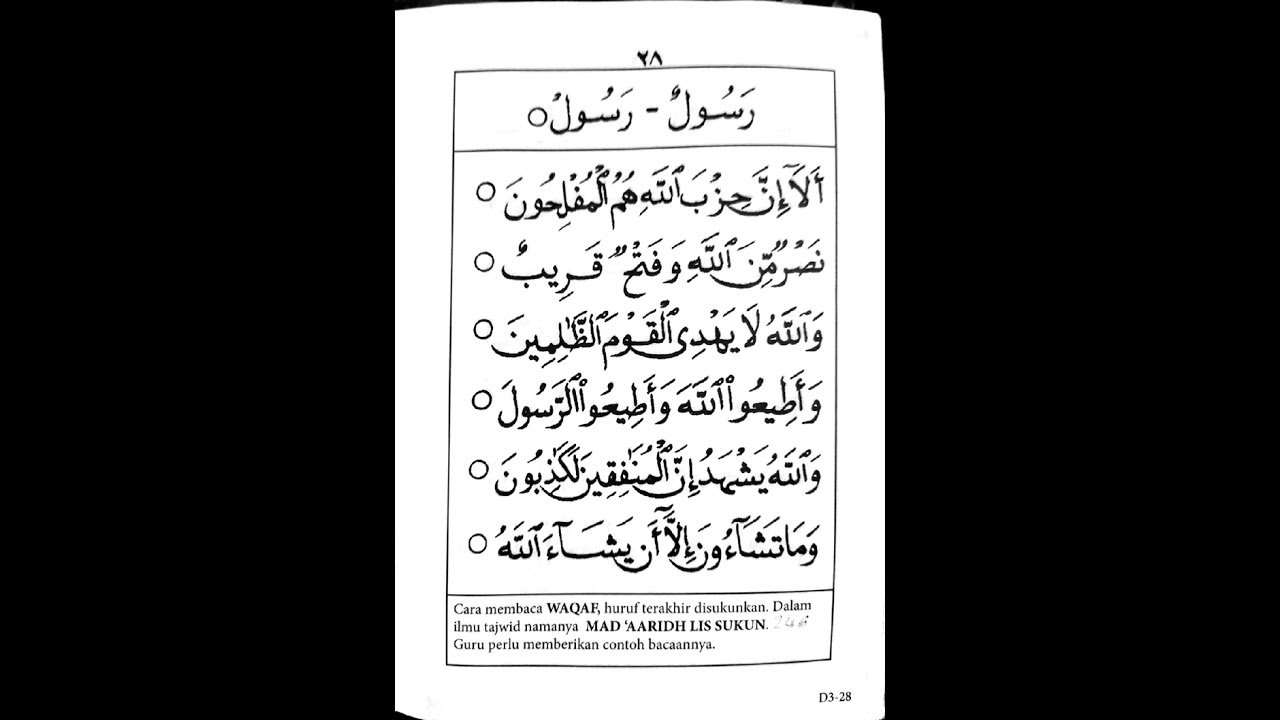 ٢٨
رَسُولٌ - رَسُولْ ○
أَلَآ إِنَّ حِزْبَ ٱللَّهِ هُمُ ٱلْمُفْلِحُونَ ○
نَصْرٌ مِّنَ ٱللَّهِ وَفَتْحٌ قَرِيبٌ ○
وَٱللَّهُ لَا يَهْدِى ٱلْقَوْمَ ٱلظَّٰلِمِينَ ○
وَأَطِيعُوا۟ ٱللَّهَ وَأَطِيعُوا۟ ٱلرَّسُولَ ○
وَٱللَّهُ يَشْهَدُ إِنَّ ٱلْمُنَٰفِقِينَ لَكَٰذِبُونَ ○
وَمَا تَشَآءُونَ إِلَّآ أَن يَشَآءَ ٱللَّهُ ○
Cara membaca WAQAF, huruf terakhir disukunkan. Dalam
ilmu tajwid namanya MAD ‘AARIDH LIS SUKUN.
Guru perlu memberikan contoh bacaannya.
D3-28